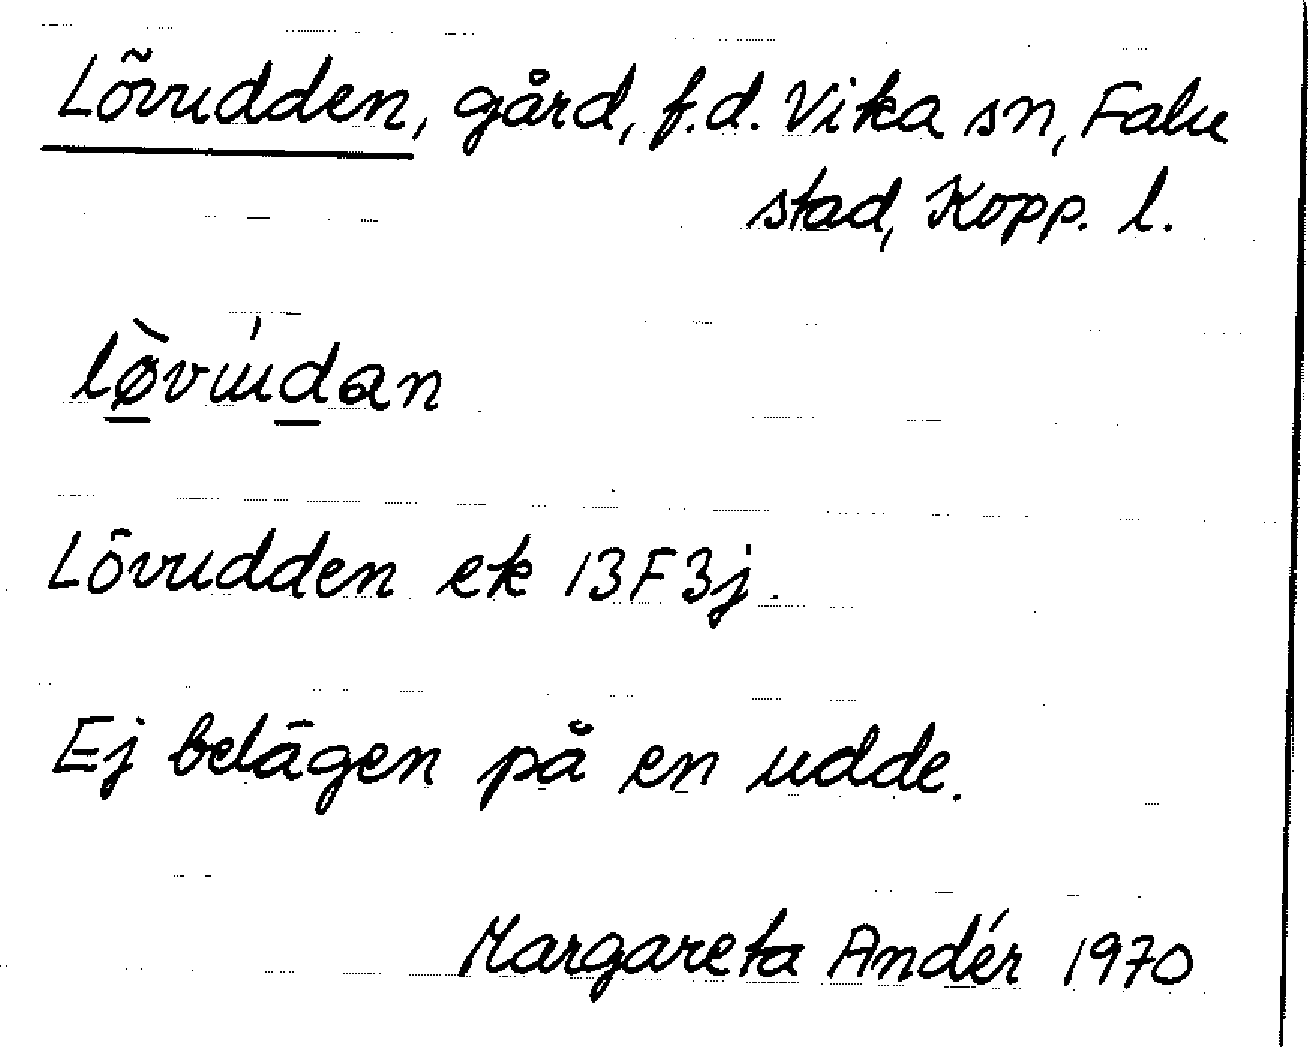 Lövudden, gård, f.d. Vika sn, Falu
stad, Kopp. l.
Lövudden ek 13F3j.
Ej belägen på en udde.
Margareta Andér 1970